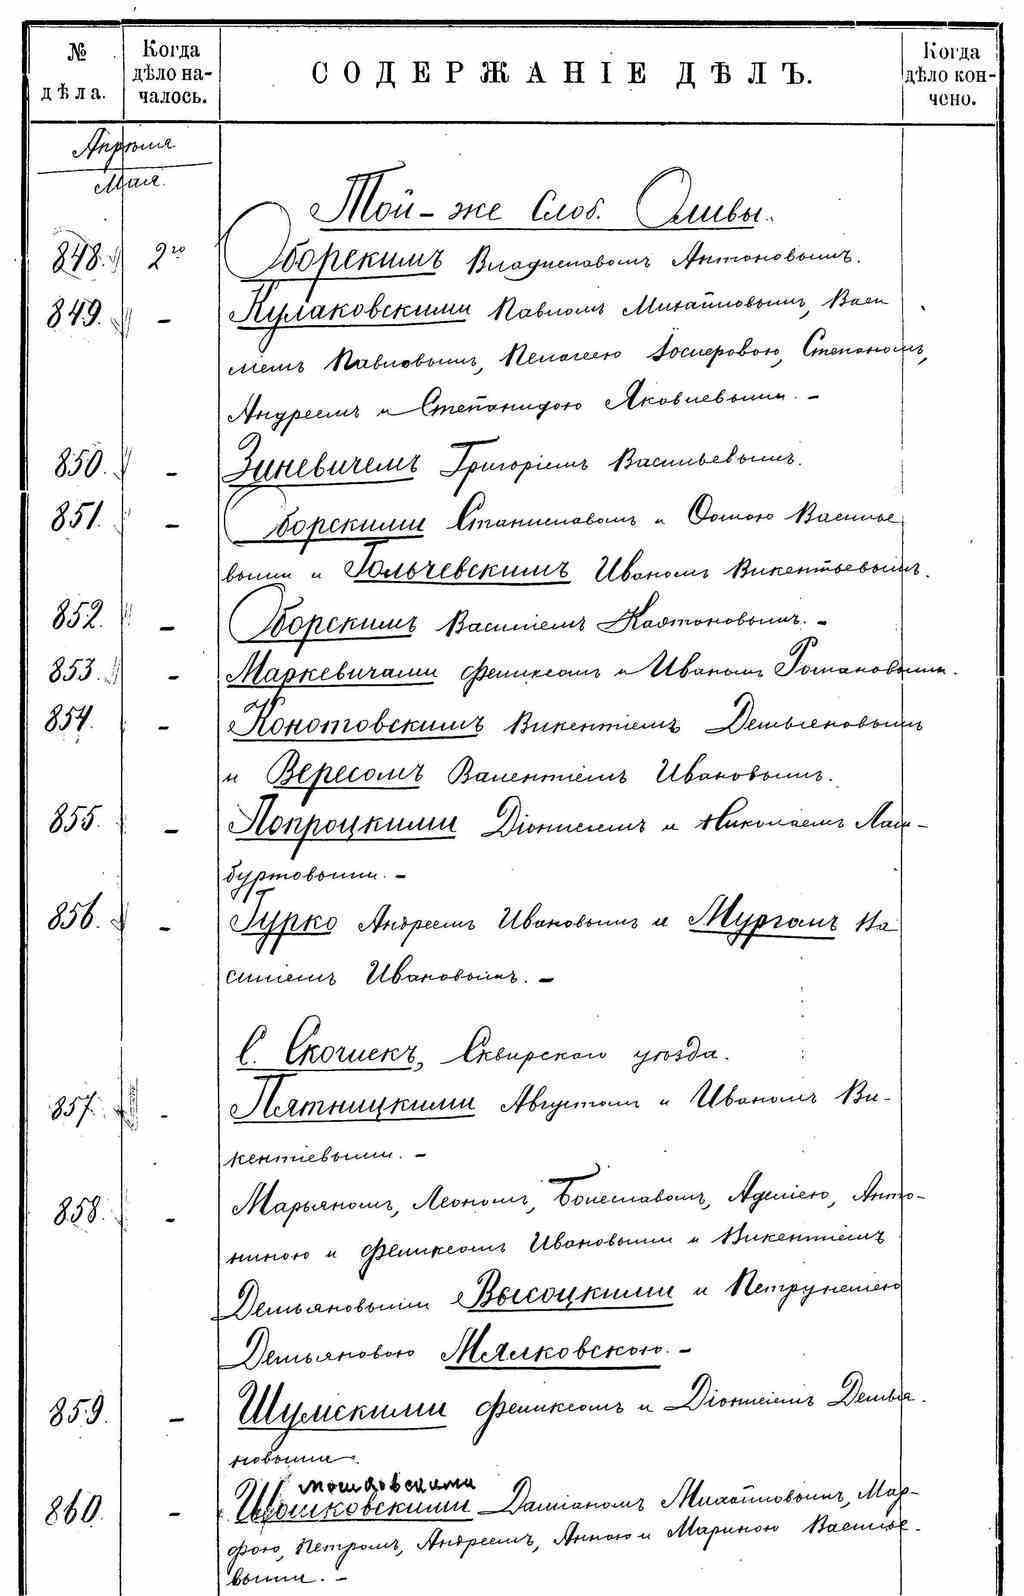 № дѣла.
Когда дѣло началось.
СОДЕРЖАНІЕ ДѢЛЪ.
Когда дѣло кончено.
Апрѣля
Мая.
Той-же Слоб. Оливы.
848. 2го Оборскимъ Владиславомъ Антоновымъ.
849. – Кулаковскими Павломъ Михайловымъ, Васи
ліемъ Павловымъ, Пелагеею Іосиеровою, Степаномъ,
Андреемъ и Степанидою Яковлевыми. –
850. – Зиневичемъ Григоріемъ Васильевымъ.
851. – Оборскими Станиславомъ и Ѳомою Василье
выми и Гольчевскимъ Иваномъ Викентьевымъ.
852. – Оборскимъ Василіемъ Каэтановымъ. –
853. – Маркевичами Феликсомъ и Иваномъ Романовыми.
854. – Конотовскимъ Викентіемъ Демьяновымъ
и Вересомъ Валентіемъ Ивановымъ.
855. – Попроцкими Діонисіемъ и Николаемъ Лам-
буртовыми. –
856. – Гурко Андреемъ Ивановымъ и Мурганъ Ва
силіемъ Ивановымъ. –
С. Скочискъ, Сквирскаго уѣзда.
857. – Пятницкими Августомъ и Иваномъ Ви-
кентіевыми. –
858. – Марьяномъ, Леономъ, Болеславомъ, Аделіею, Анто-
ниною и Феликсомъ Ивановыми и Викентіемъ
Демьяновыми Высоцкими и Петрунелію
Демьяновою Мялковскою. –
859. – Шумскими Феликсомъ и Діонисіемъ Демья-
новыми.
мошковскими
860. – Шошковскими Даміаномъ Михайловымъ, Мар-
фою, Петромъ, Андреемъ, Анною и Мариною Василье-
выми. –